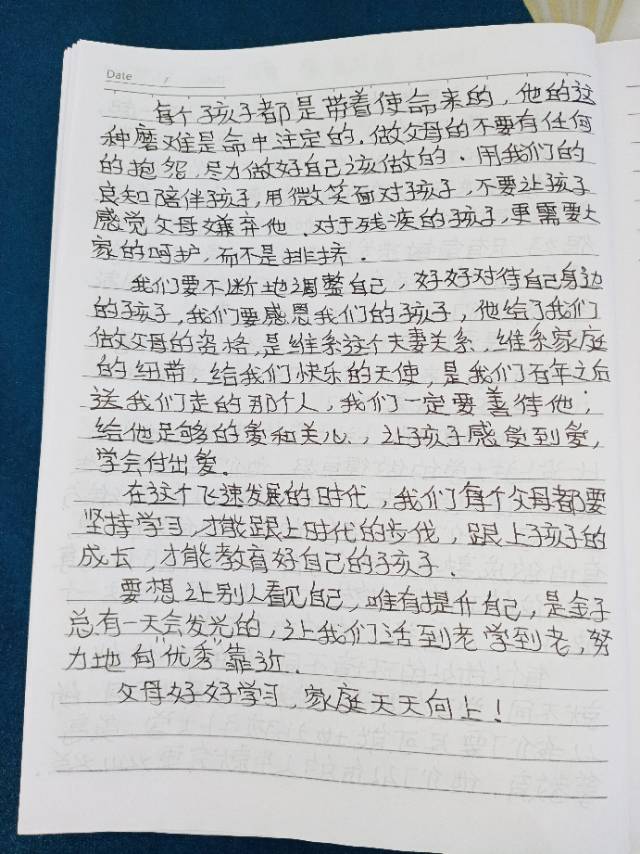 Date /
每个孩子都是带着使命来的，他的这
种磨难是命中注定的．做父母的不要有任何
的抱怨，尽力做好自己该做的．用我们的
良知陪伴孩子，用微笑面对孩子，不要让孩子
感觉父母嫌弃他．对于残疾的孩子，更需要大
家的呵护，而不是排挤．
我们要不断地调整自己，好好对待自己身边
的孩子，我们要感恩我们的孩子，他给了我们
做父母的资格，是维系这个夫妻关系，维系家庭
的纽带，给我们快乐的天使，是我们百年之后
送我们走的那个人，我们一定要善待他；
给他足够的爱和关心，让孩子感觉到爱，
学会付出爱．
在这个飞速发展的时代，我们每个父母都要
坚持学习，才能跟上时代的步伐，跟上孩子的
成长，才能教育好自己的孩子．
要想让别人看见自己，唯有提升自己，是金子
总有一天会发光的，让我们活到老学到老，努
力地向“优秀”靠近．
父母好好学习，家庭天天向上！